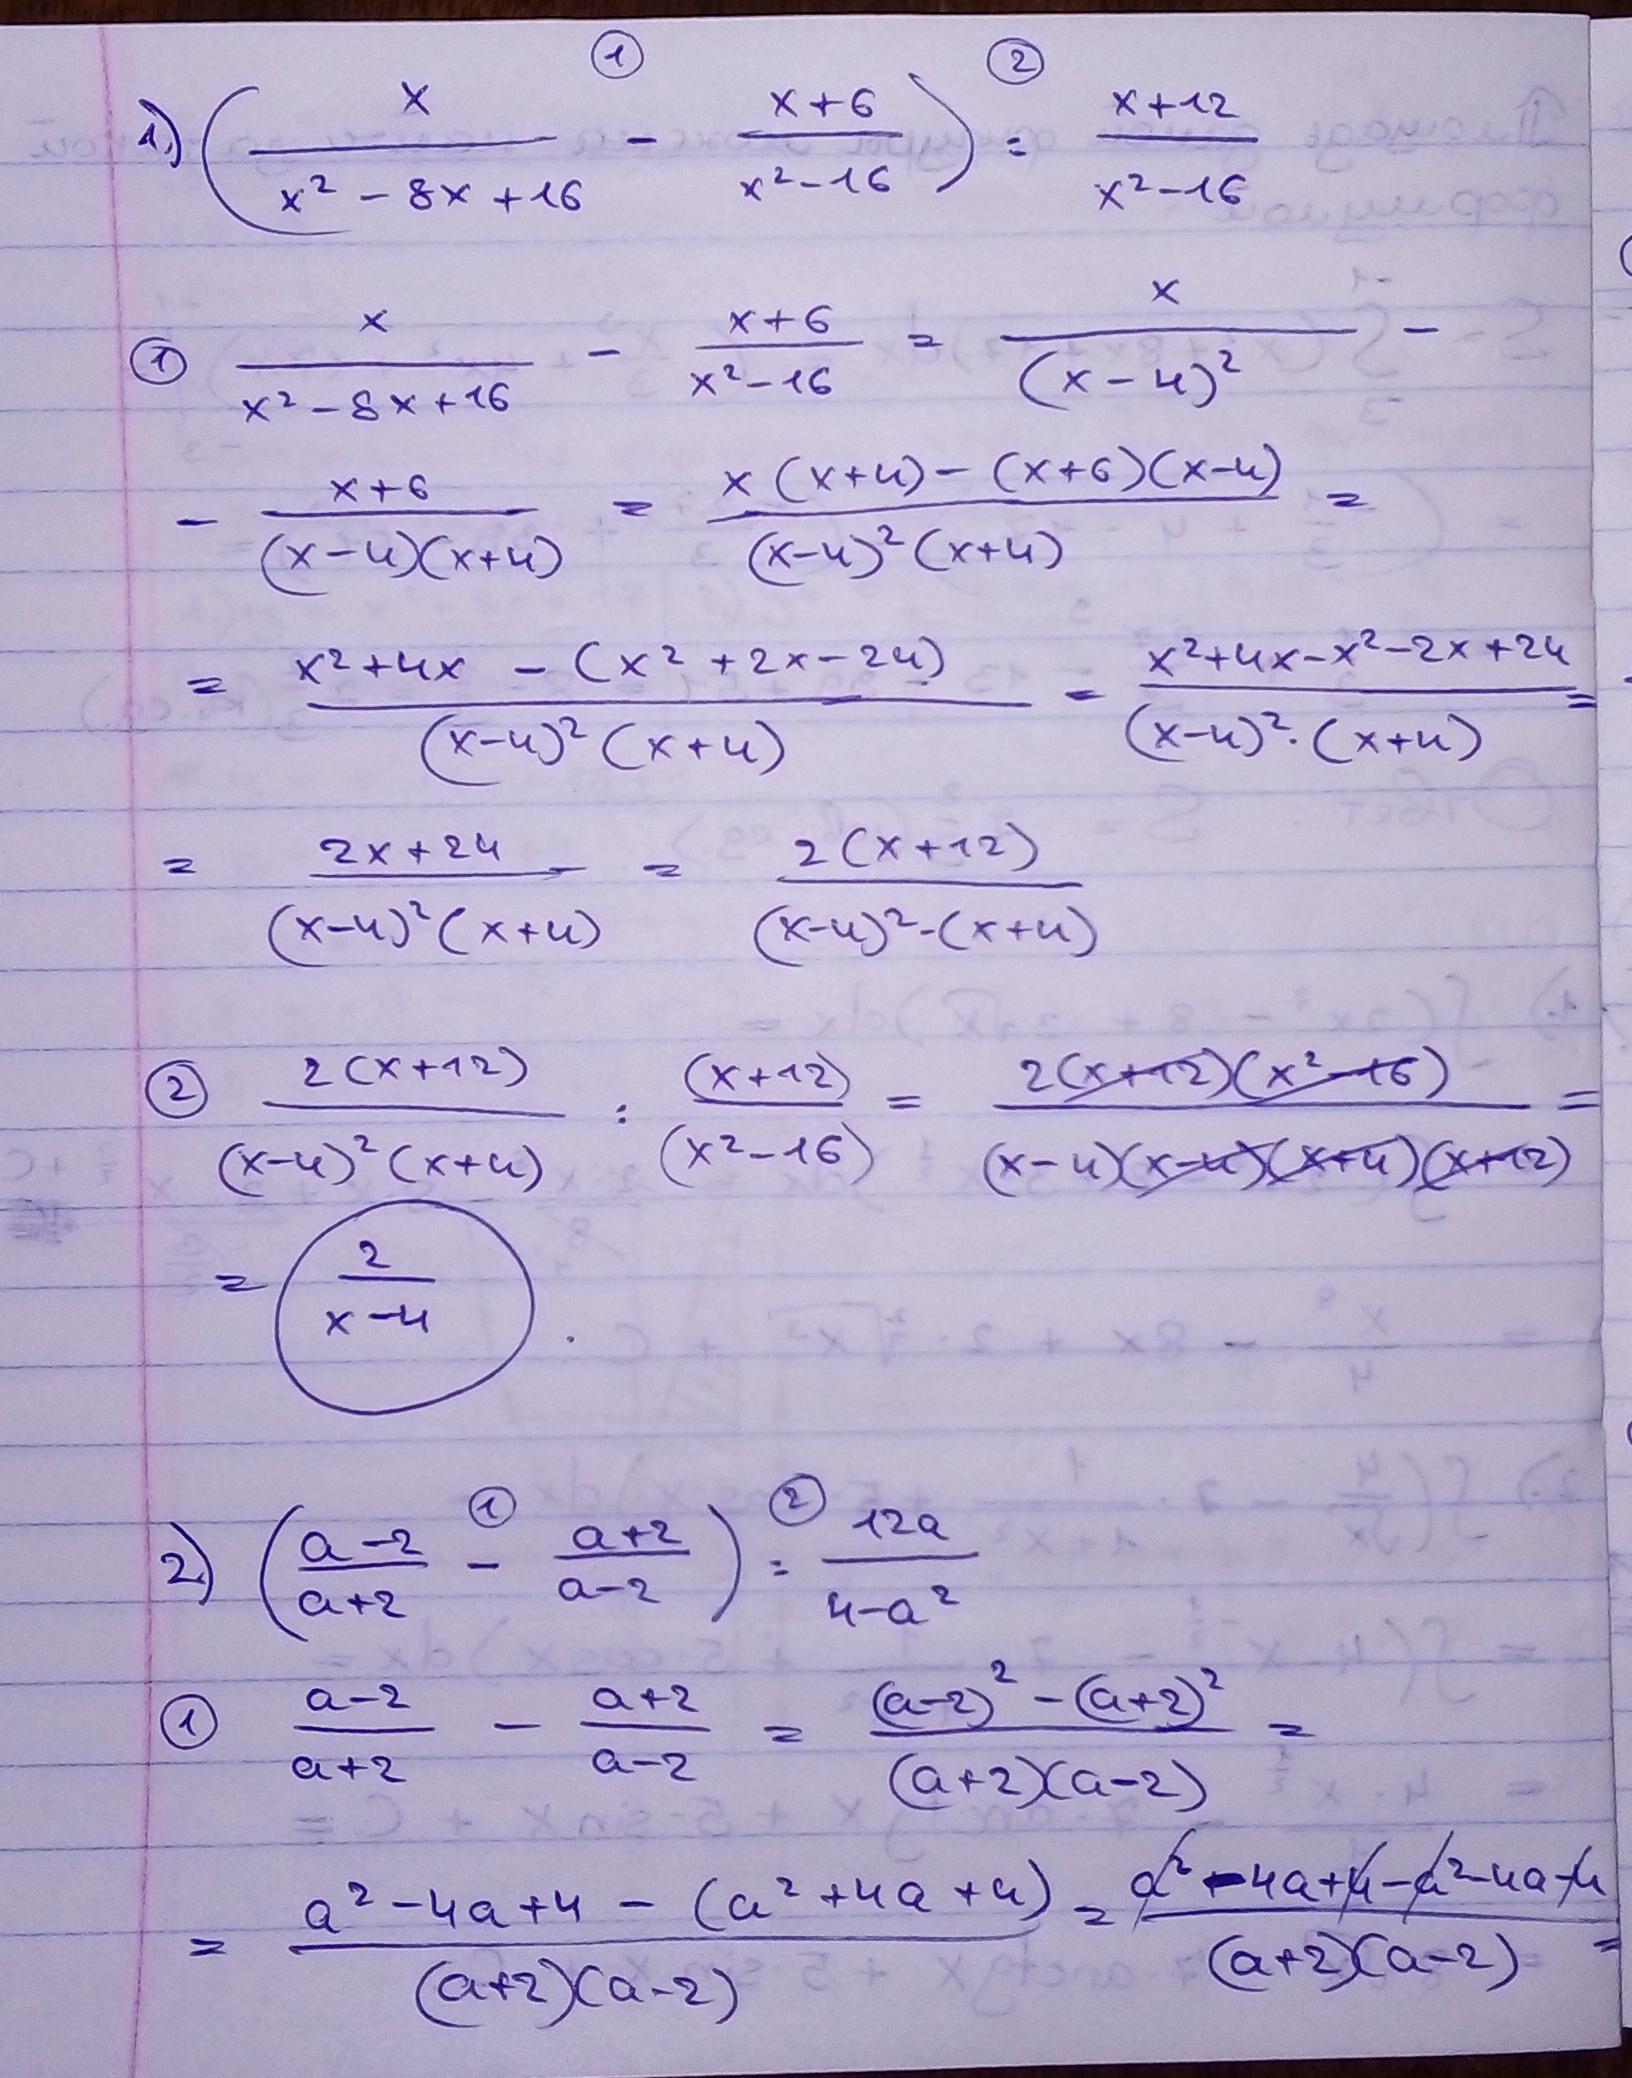 ① ②
1.) ( x / (x² - 8x + 16) - (x+6) / (x² - 16) ) : (x+12) / (x² - 16)
① x / (x² - 8x + 16) - (x+6) / (x² - 16) = x / (x-4)² -
- (x+6) / ((x-4)(x+4)) = (x(x+4) - (x+6)(x-4)) / ((x-4)²(x+4)) =
= (x² + 4x - (x² + 2x - 24)) / ((x-4)²(x+4)) = (x² + 4x - x² - 2x + 24) / ((x-4)²·(x+4)) =
= (2x + 24) / ((x-4)²(x+4)) = 2(x+12) / ((x-4)²·(x+4))
② 2(x+12) / ((x-4)²(x+4)) : (x+12) / (x²-16) = 2(x+12)(x²-16) / ((x-4)(x-4)(x+4)(x+12)) =
= 2 / (x-4) .
① ②
2.) ( (a-2) / (a+2) - (a+2) / (a-2) ) : 12a / (4-a²)
① (a-2) / (a+2) - (a+2) / (a-2) = ((a-2)² - (a+2)²) / ((a+2)(a-2)) =
= (a² - 4a + 4 - (a² + 4a + 4)) / ((a+2)(a-2)) = (a² - 4a + 4 - a² - 4a - 4) / ((a+2)(a-2)) =